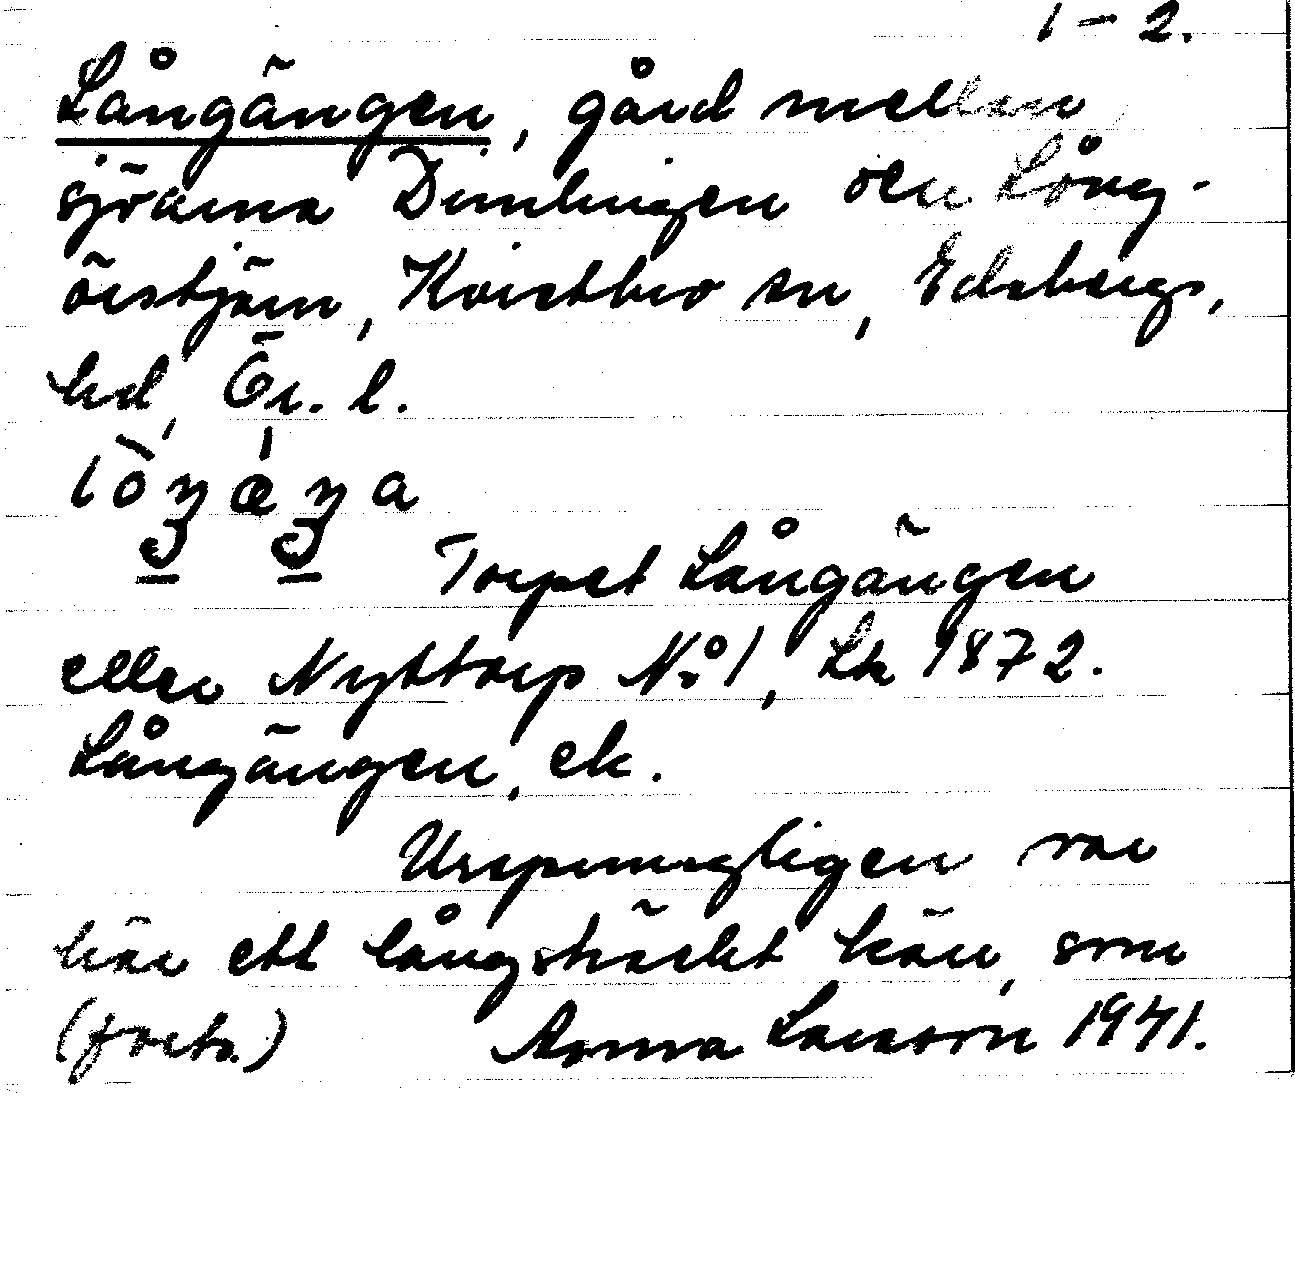 1-2.
Långängen, gård mellan
sjöarna Dimlingen och Lång-
örstjärn, Kvistbro sn, Edsbergs,
hd, Ör. l.
Torpet Långängen
eller Nyttorp No 1, Lk 1872.
Långängen, ek.
Ursprungligen var
här ett långsträckt kärr, som
(forts.) Anna Larsson 1941.